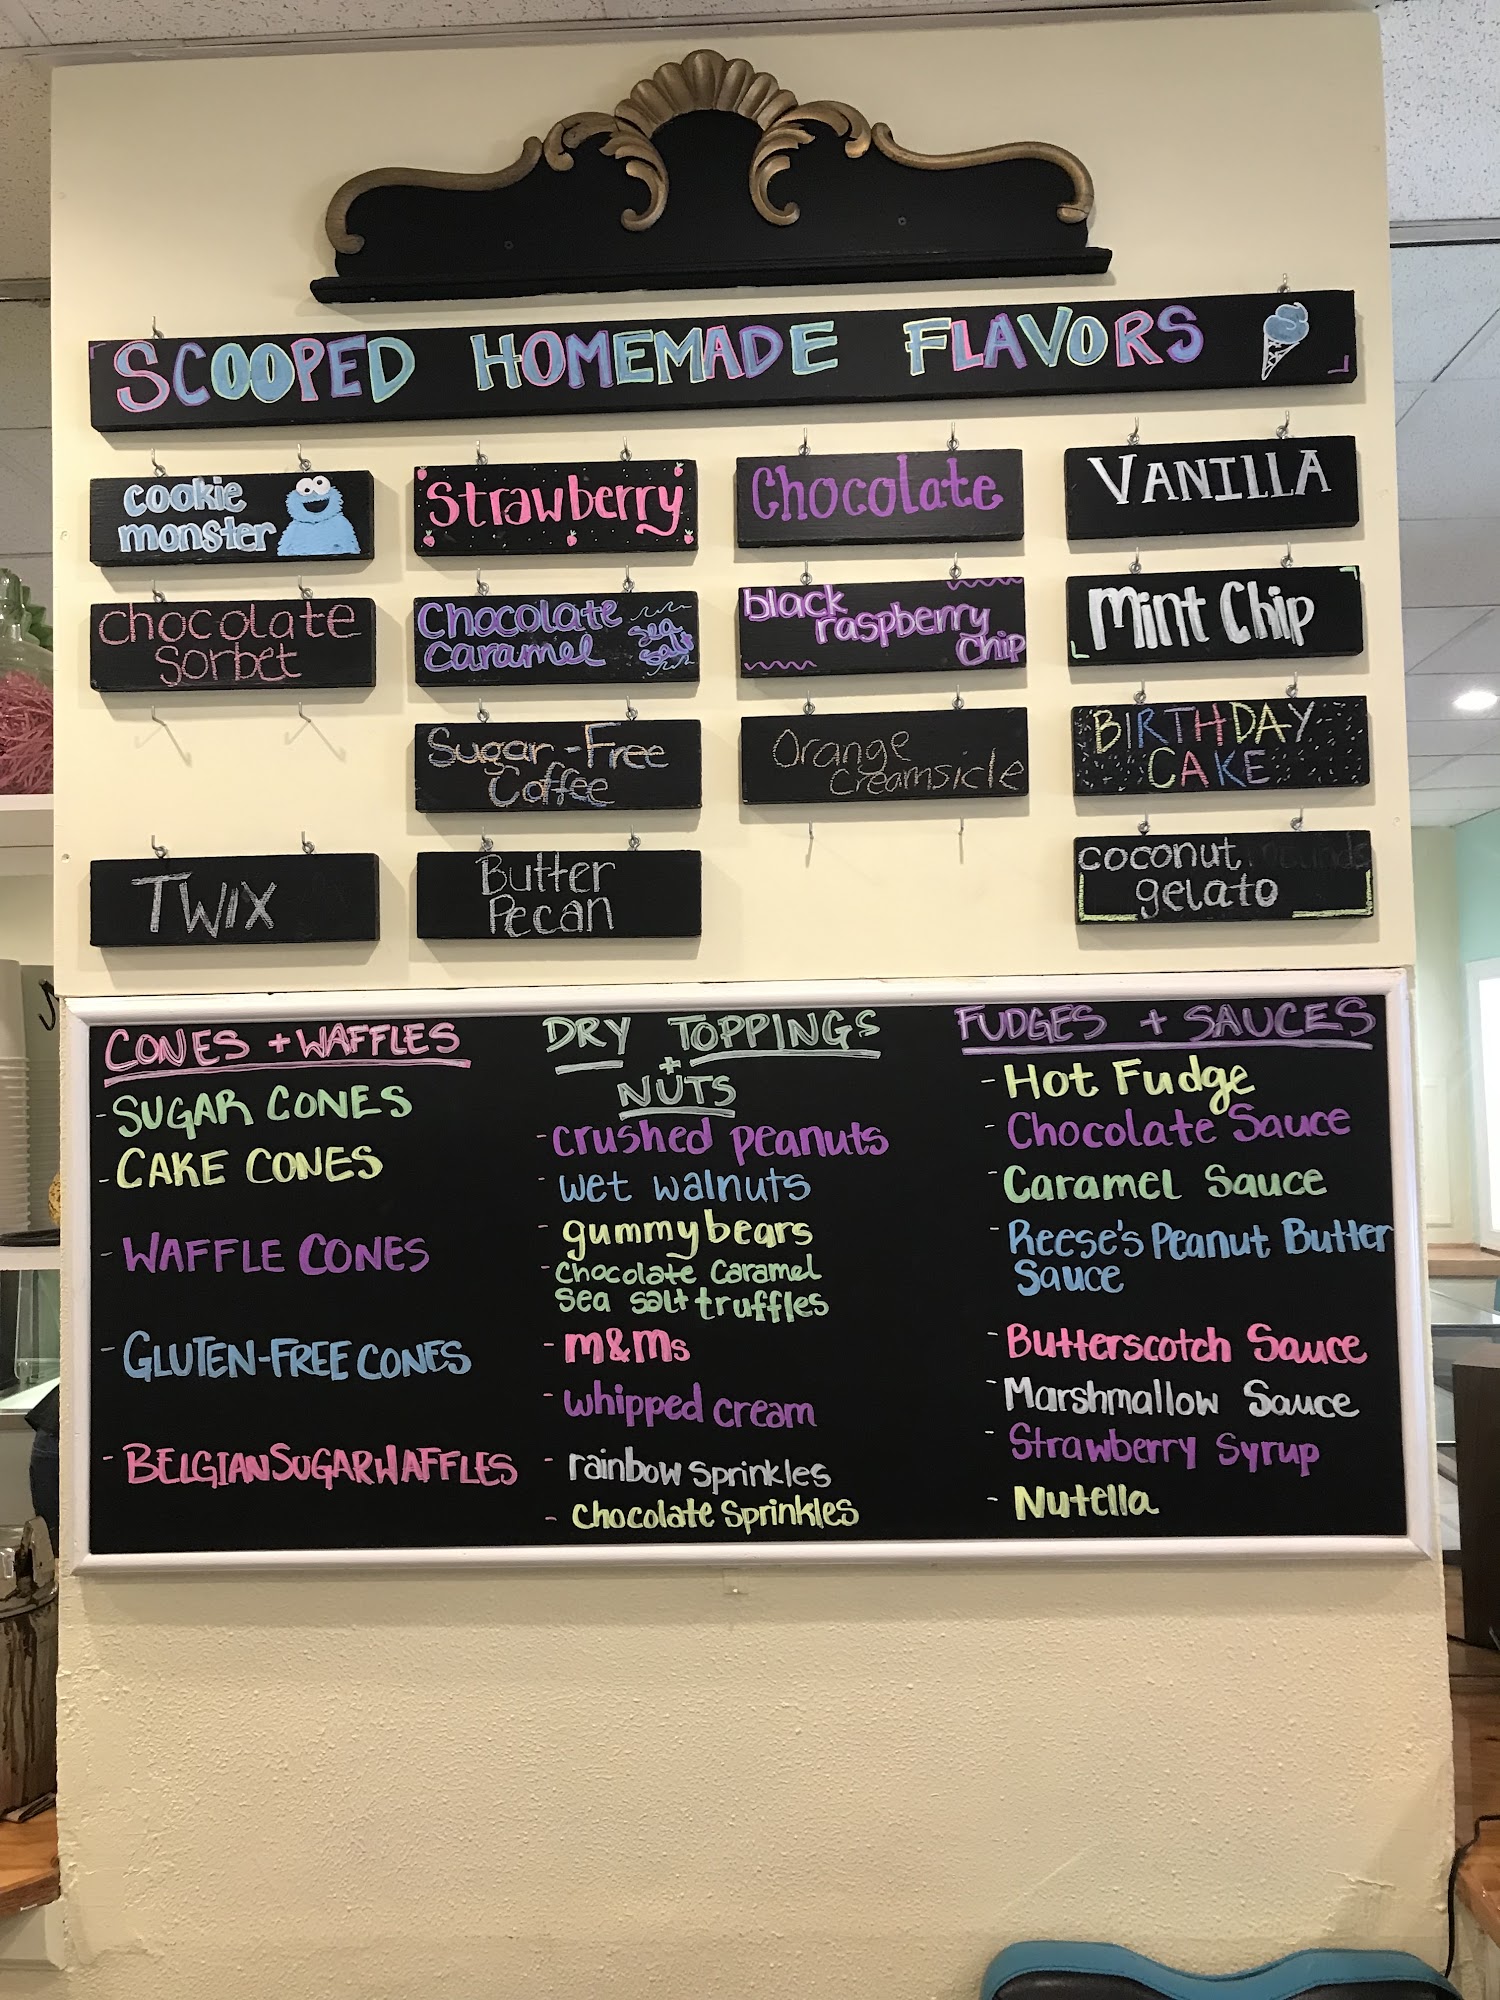 SCOOPED HOMEMADE FLAVORS
cookie
monster
Strawberry
Chocolate
VANILLA
chocolate
sorbet
Chocolate
caramel
sea
salt
black
raspberry
chip
Mint Chip
Sugar-Free
Coffee
Orange
Creamsicle
BIRTHDAY
CAKE
TWIX
Butter
Pecan
coconut
gelato
CONES + WAFFLES
- SUGAR CONES
- CAKE CONES
- WAFFLE CONES
- GLUTEN-FREE CONES
- BELGIAN SUGAR WAFFLES
DRY TOPPINGS
+
NUTS
- crushed peanuts
- wet walnuts
- gummy bears
- Chocolate Caramel
sea salt truffles
- m&ms
- whipped cream
- rainbow sprinkles
- Chocolate Sprinkles
FUDGES + SAUCES
- Hot Fudge
- Chocolate Sauce
- Caramel Sauce
- Reese's Peanut Butter
Sauce
- Butterscotch Sauce
- Marshmallow Sauce
- Strawberry Syrup
- Nutella